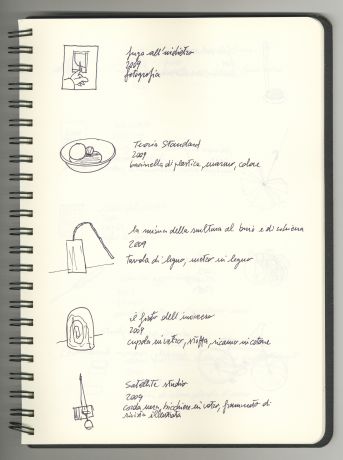 fuga all'indietro
2009
fotografia
Teoria Standard
2009
bacinella di plastica, marmo, colore
la misura della scultura al buio e di schiena
2009
tavola di legno, metro in legno
il fiato dell'universo
2009
cupola in vetro, stoffa, ricamo in cotone
Satellite studio
2009
corda nera, bicchiere in vetro, frammento di
rivista illustrata